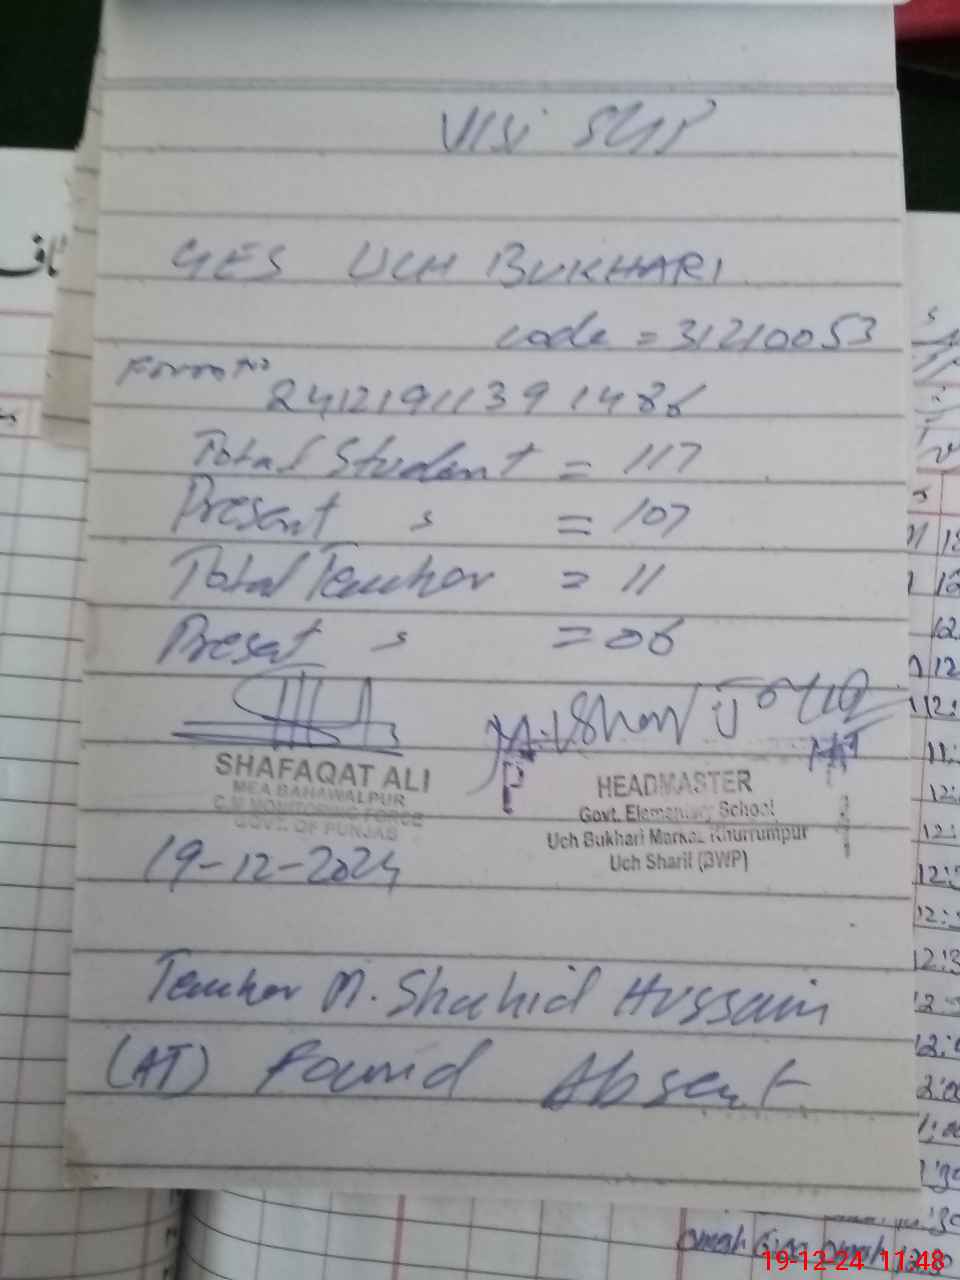 VISI SLIP
GES UCH BUKHARI
code = 31210053
Form No
2412191139 1486
Total Student = 117
Present s = 107
Total Teacher = 11
Preset s = 06
SHAFAQAT ALI
MEA BAHAWALPUR
C.M MONITORING FORCE
GOVT. OF PUNJAB
19-12-2024
HEADMASTER
Govt. Elementary School
Uch Bukhari Markaz Khurrumpur
Uch Sharif (BWP)
Teacher M. Shahid Hussain
(AT) Found Absent
19-12-24 11:48